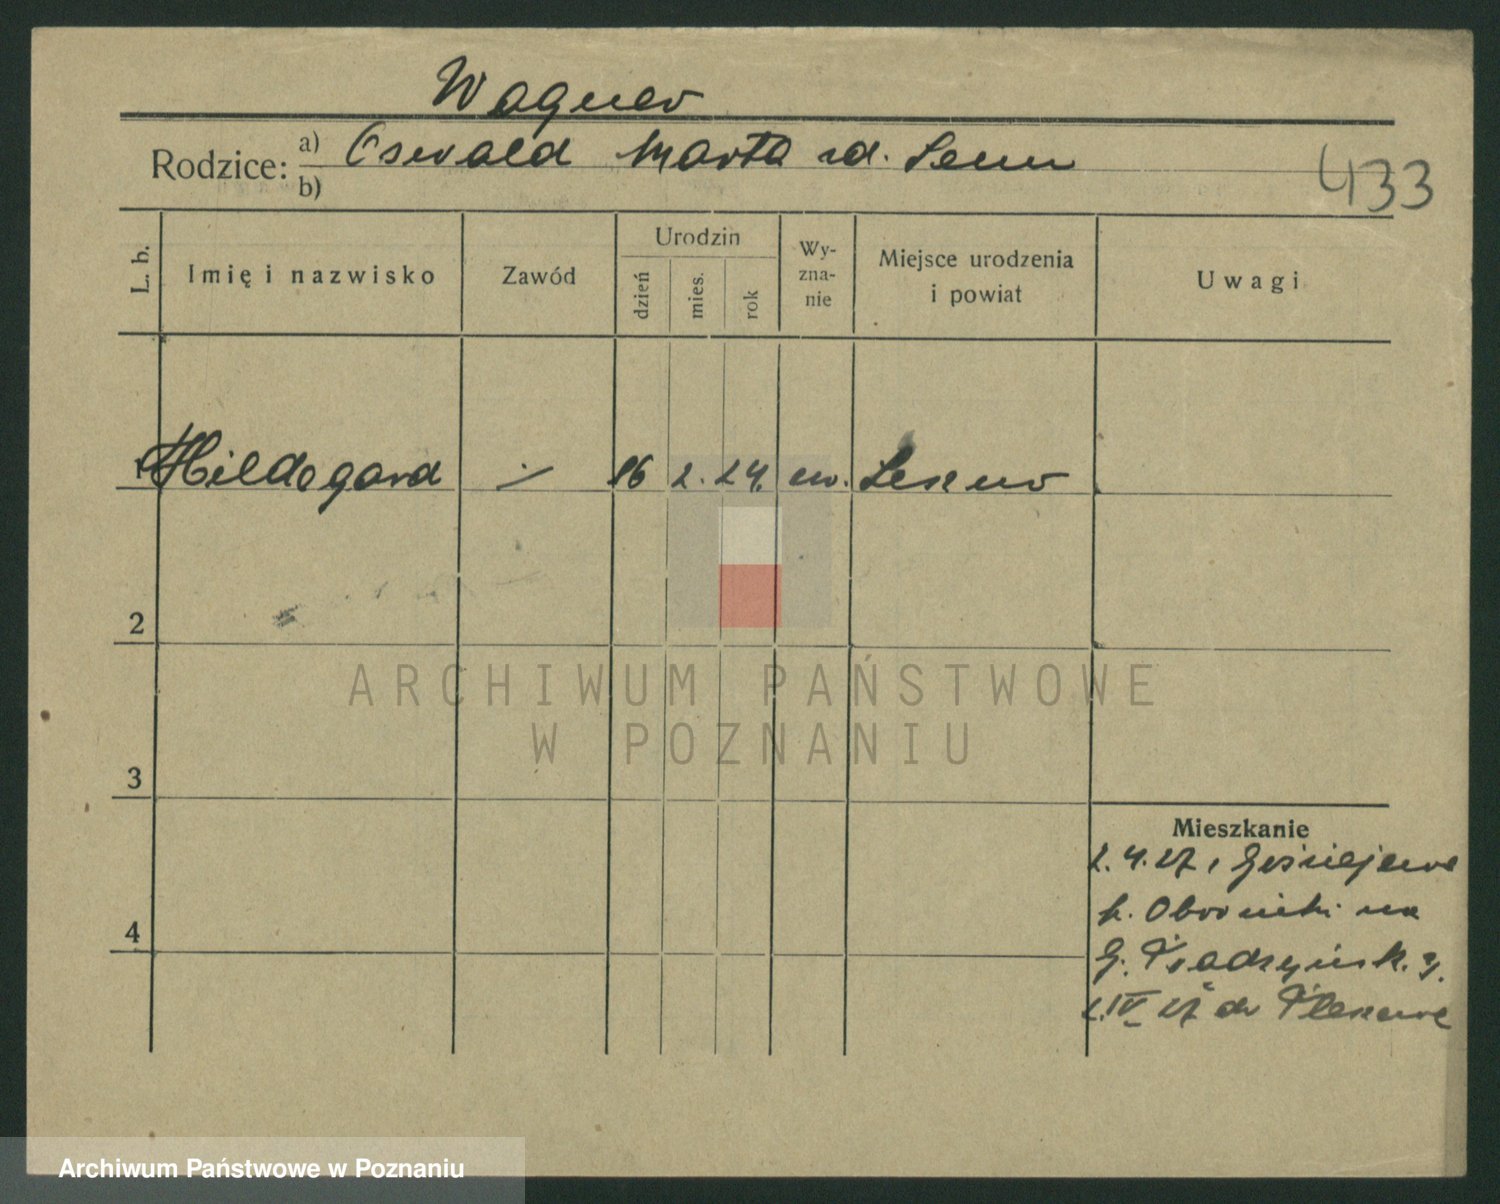 Wagner
Rodzice: a) Oswald Marta rd. Senn
b)
433
L. b.
Imię i nazwisko
Zawód
Urodzin
dzień
mies.
rok
Wy-
zna-
nie
Miejsce urodzenia
i powiat
Uwagi
1 Hildegard ./. 16 2. 24. ew. Leszno
2
ARCHIWUM PAŃSTWOWE
W POZNANIU
3
Mieszkanie
2. 4. 27,
4
k. Oborniki na
G.
2.IV 27 do
Archiwum Państwowe w Poznaniu